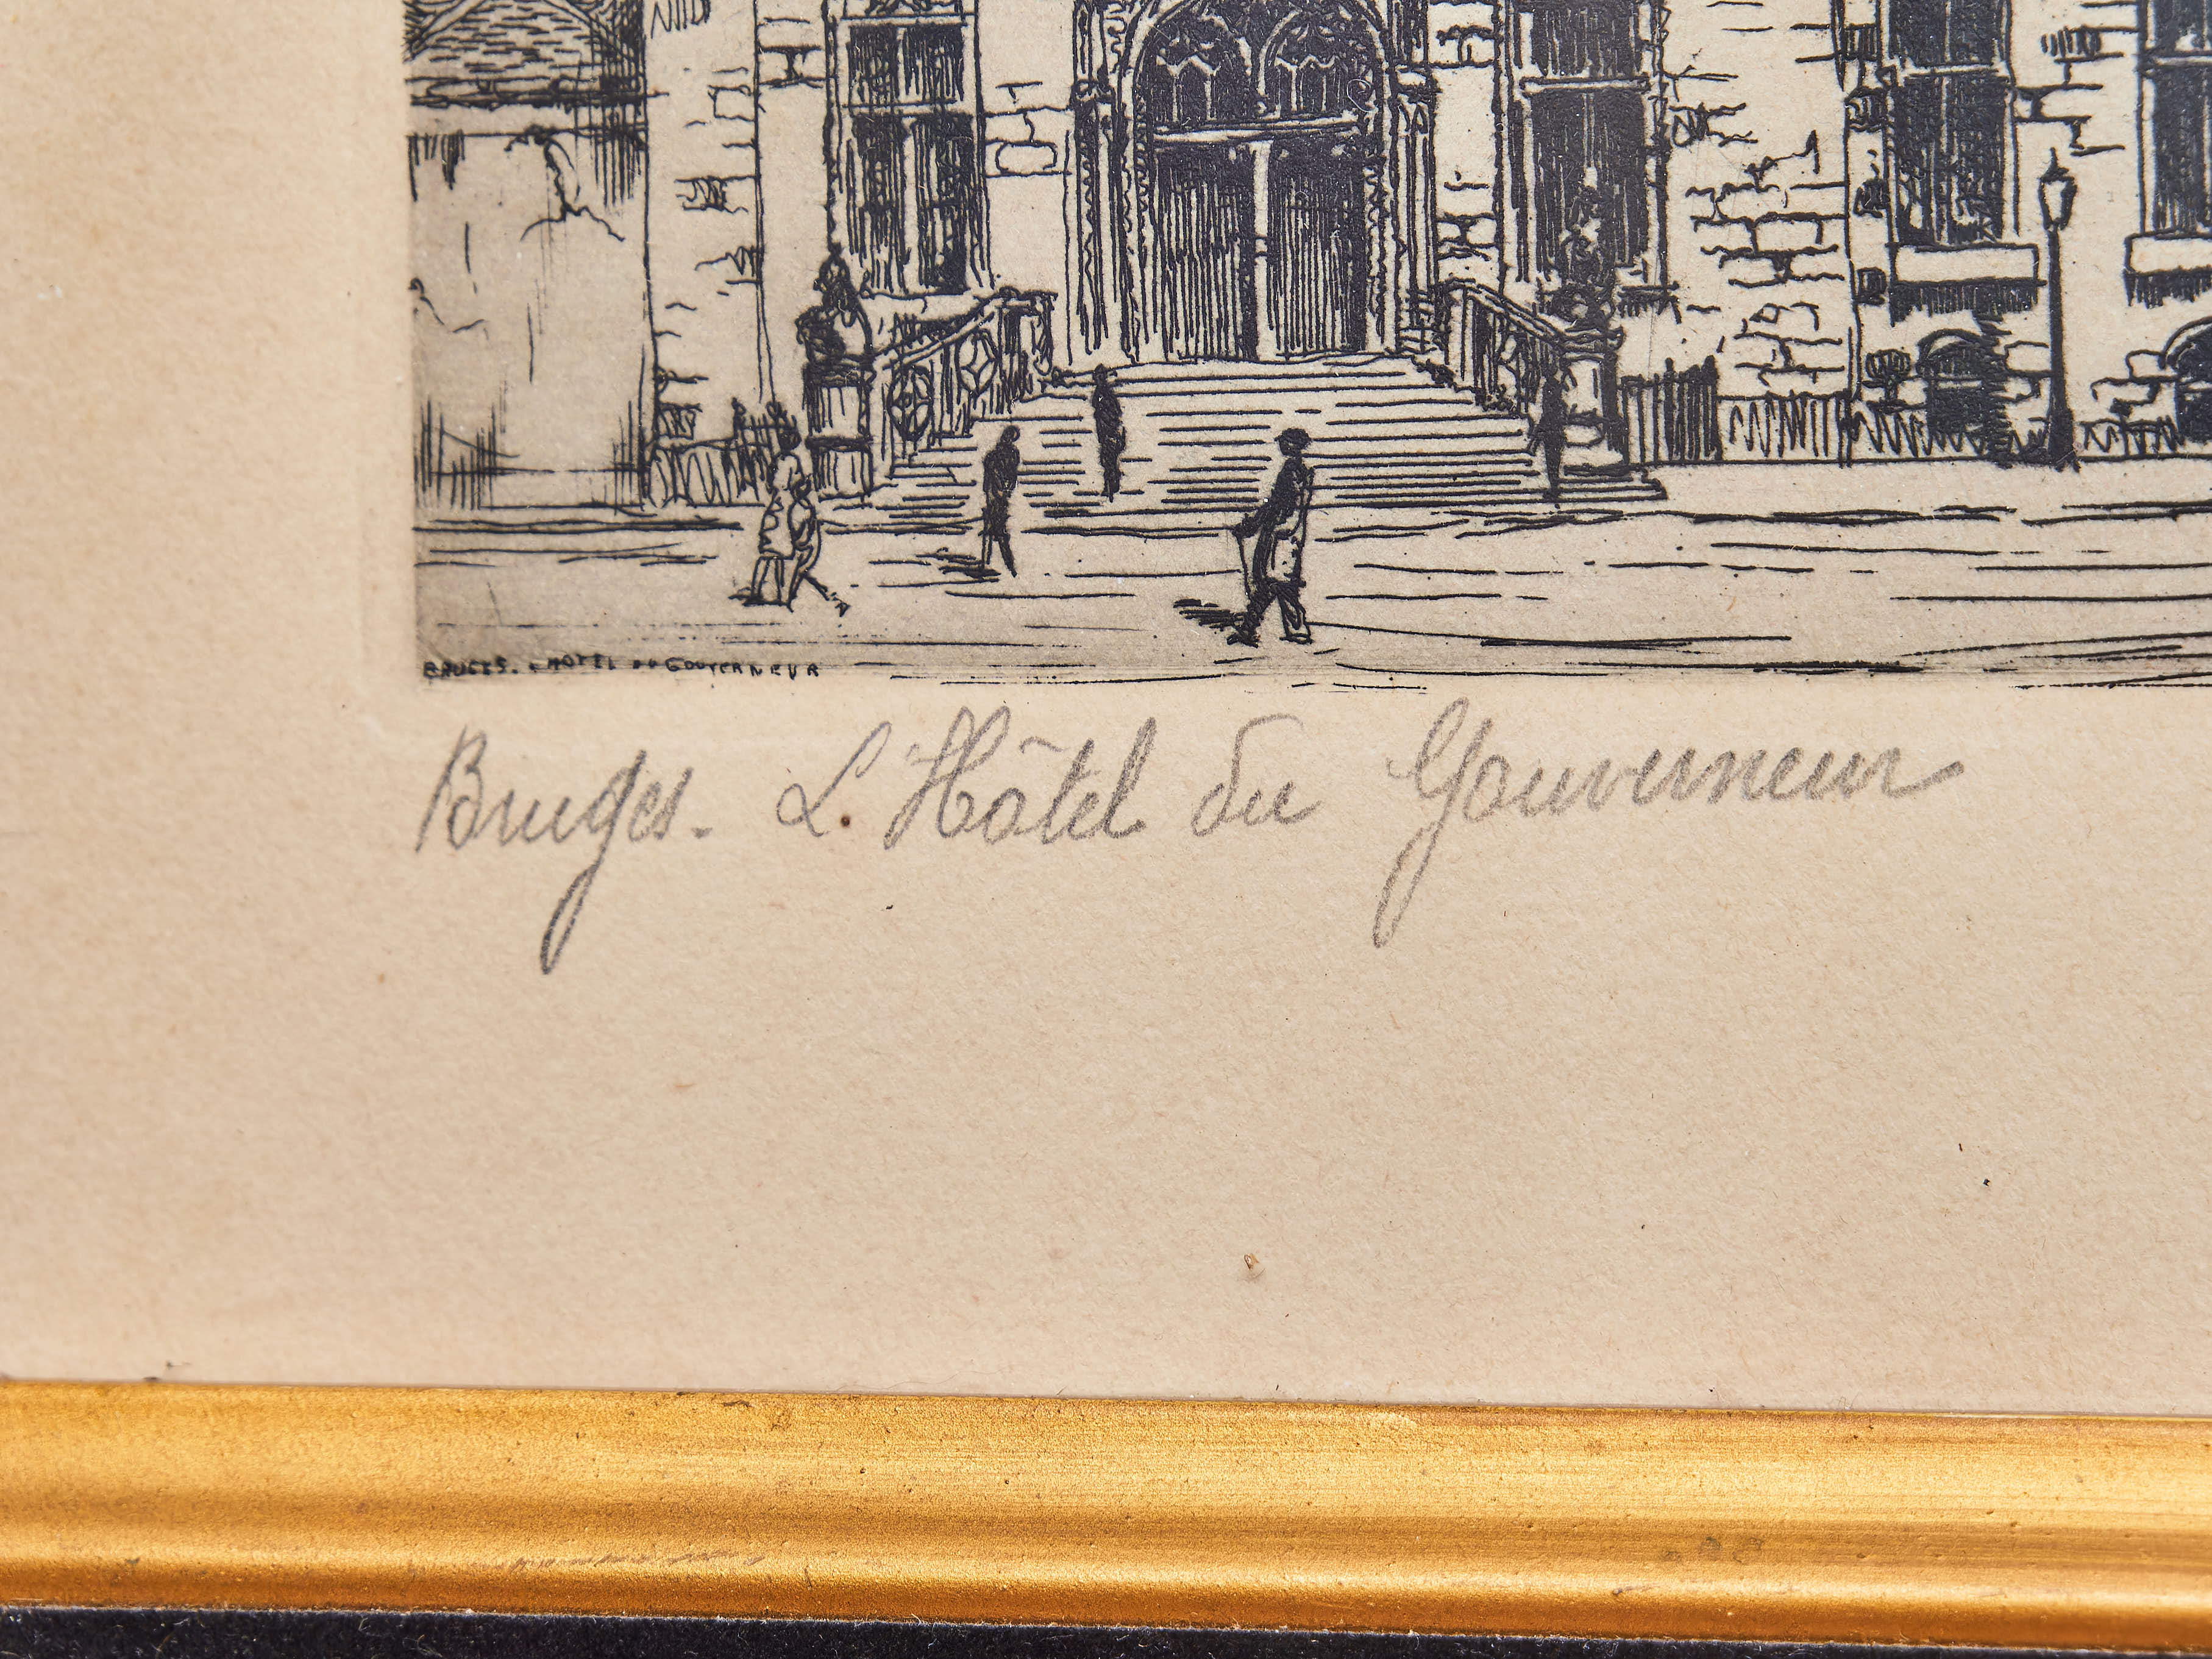 BRUGES. HOTEL DU GOUVERNEUR
Bruges. L'Hôtel du Gouverneur